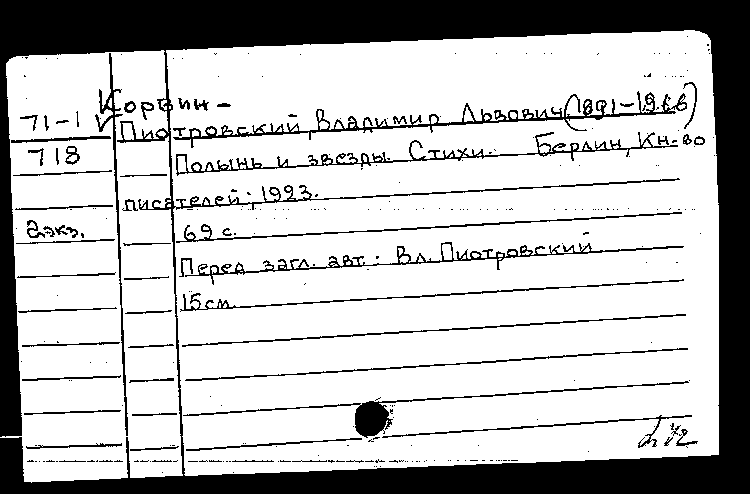 Корвин-
71-1 Пиотровский, Владимир Львович (1891-1966)
718 Полынь и звезды. Стихи. Берлин, Кн-во
писателей, 1923.
2 экз. 69 с.
Перед загл. авт.: Вл. Пиотровский
15 см.